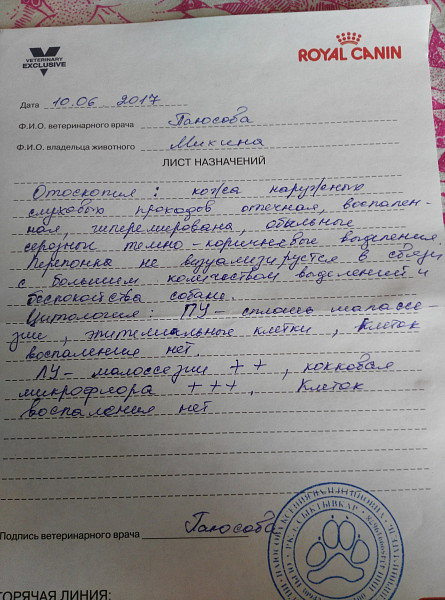 VETERINARY
EXCLUSIVE
ROYAL CANIN
Дата 10.06 2017
Ф.И.О. ветеринарного врача Паюсова
Ф.И.О. владельца животного Микина
ЛИСТ НАЗНАЧЕНИЙ
Отоскопия: кожа наружных
слуховых проходов отечная, воспален-
ная, гиперемирована, обильные
серозные темно-коричневые выделения
Перепонка не визуализируется в связи
с большим количеством выделений и
беспокойства собаки.
Цитология: ПУ- сплошь малассе-
зии, эпителиальные клетки, клеток
воспаления нет.
ЛУ- малоссезии ++, кокковая
микрофлора +++, клеток
воспаления нет
Подпись ветеринарного врача Паюсова
ГОРЯЧАЯ ЛИНИЯ: